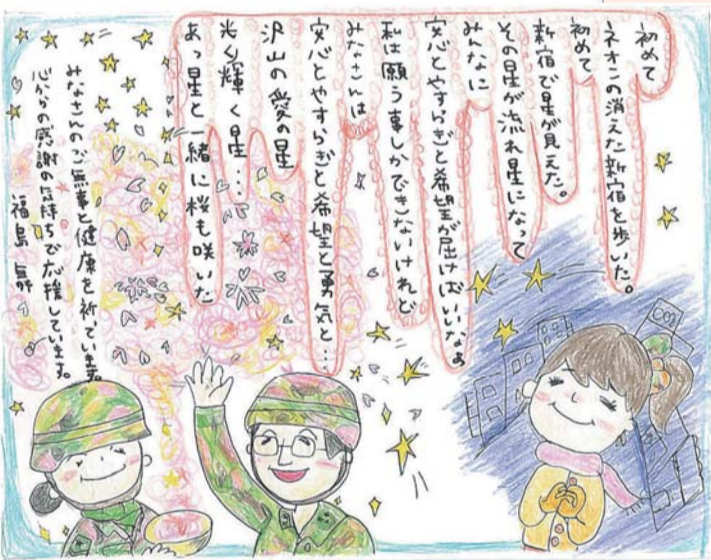 初めて
ネオンの消えた新宿を歩いた。
初めて
新宿で星が見えた。
その星が流れ星になって
みんなに
安心とやすらぎと希望が届けばいいなぁ
私は願う事しかできないけれど
みなさんは
安心とやすらぎと希望と勇気と…
沢山の愛の星
光り輝く星…
あっ星と一緒に桜も咲いた
みなさんのご無事と健康を祈ています。
心からの感謝の気持ちで応援しています。
福島